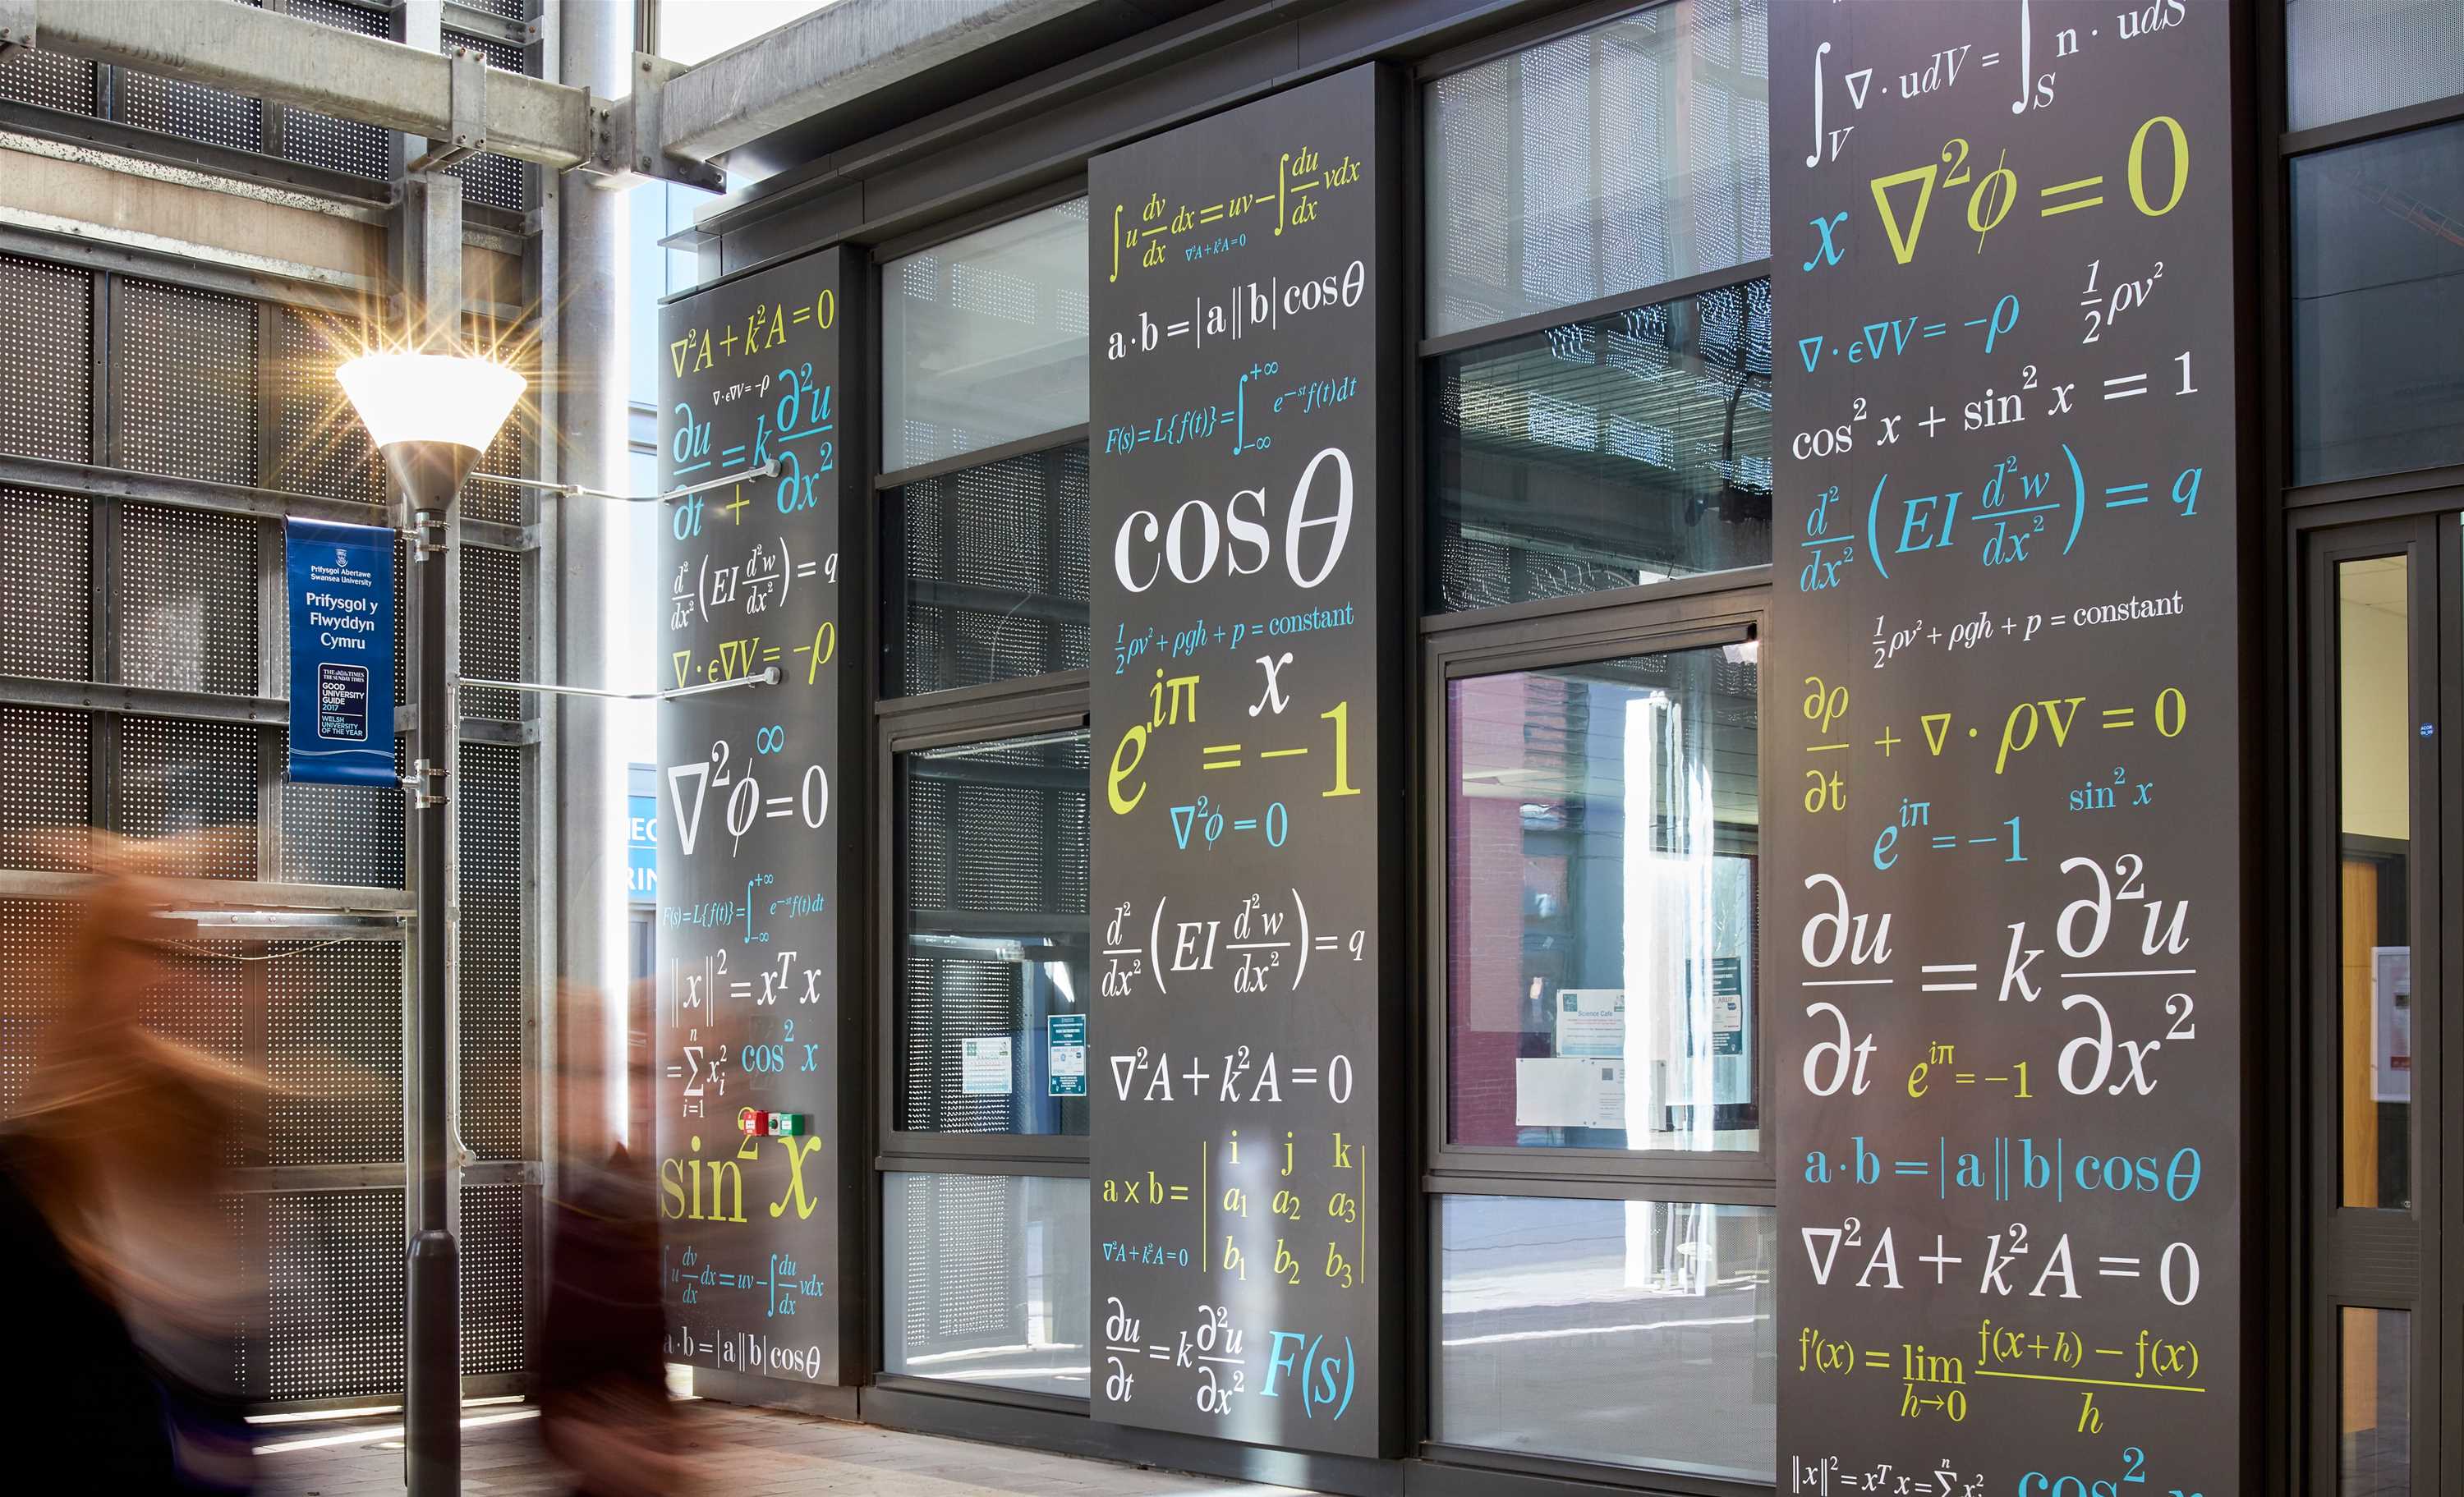 Prifysgol Abertawe
Swansea University
Prifysgol y
Flwyddyn
Cymru
THE TIMES
THE SUNDAY TIMES
GOOD
UNIVERSITY
GUIDE
2017
WELSH
UNIVERSITY
OF THE YEAR
∇²A + k²A = 0
∇·ϵ∇V = −ρ
∂u/∂t = k ∂²u/∂x²
+
d²/dx² (EI d²w/dx²) = q
∇·ϵ∇V = −ρ
∞
∇²ϕ = 0
F(s) = L{f(t)} = ∫_{−∞}^{+∞} e^{−st} f(t) dt
‖x‖² = xᵀx
= ∑_{i=1}^{n} x_i²
cos² x
sin² x
∫ u dv/dx dx = uv − ∫ du/dx vdx
a·b = |a||b| cosθ
∫ u dv/dx dx = uv − ∫ du/dx vdx
∇²A + k²A = 0
a·b = |a||b| cosθ
F(s) = L{f(t)} = ∫_{−∞}^{+∞} e^{−st} f(t) dt
cosθ
½ρv² + ρgh + p = constant
x
e^{iπ} = −1
∇²ϕ = 0
d²/dx² (EI d²w/dx²) = q
∇²A + k²A = 0
a × b = | i j k |
| a₁ a₂ a₃ |
| b₁ b₂ b₃ |
∇²A + k²A = 0
∂u/∂t = k ∂²u/∂x²
F(s)
Science Cafe
∫_V ∇·udV = ∫_S n·udS
x
∇²ϕ = 0
∇·ϵ∇V = −ρ
½ρv²
cos² x + sin² x = 1
d²/dx² (EI d²w/dx²) = q
½ρv² + ρgh + p = constant
∂ρ/∂t + ∇·ρv = 0
e^{iπ} = −1
sin² x
∂u/∂t = k ∂²u/∂x²
e^{iπ} = −1
a·b = |a||b| cosθ
∇²A + k²A = 0
f′(x) = lim_{h→0} (f(x+h) − f(x))/h
‖x‖² = xᵀx = ∑ⁿ x_i²
cos² x